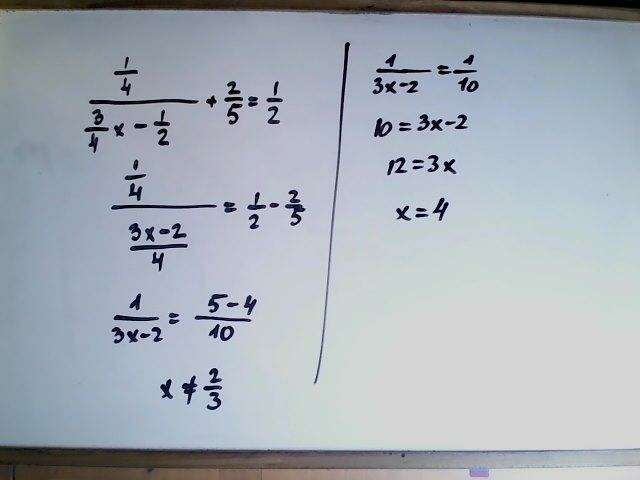 (1/4)/(3/4 x - 1/2) + 2/5 = 1/2
(1/4)/((3x-2)/4) = 1/2 - 2/5
1/(3x-2) = (5-4)/10
x ≠ 2/3
1/(3x-2) = 1/10
10 = 3x-2
12 = 3x
x = 4